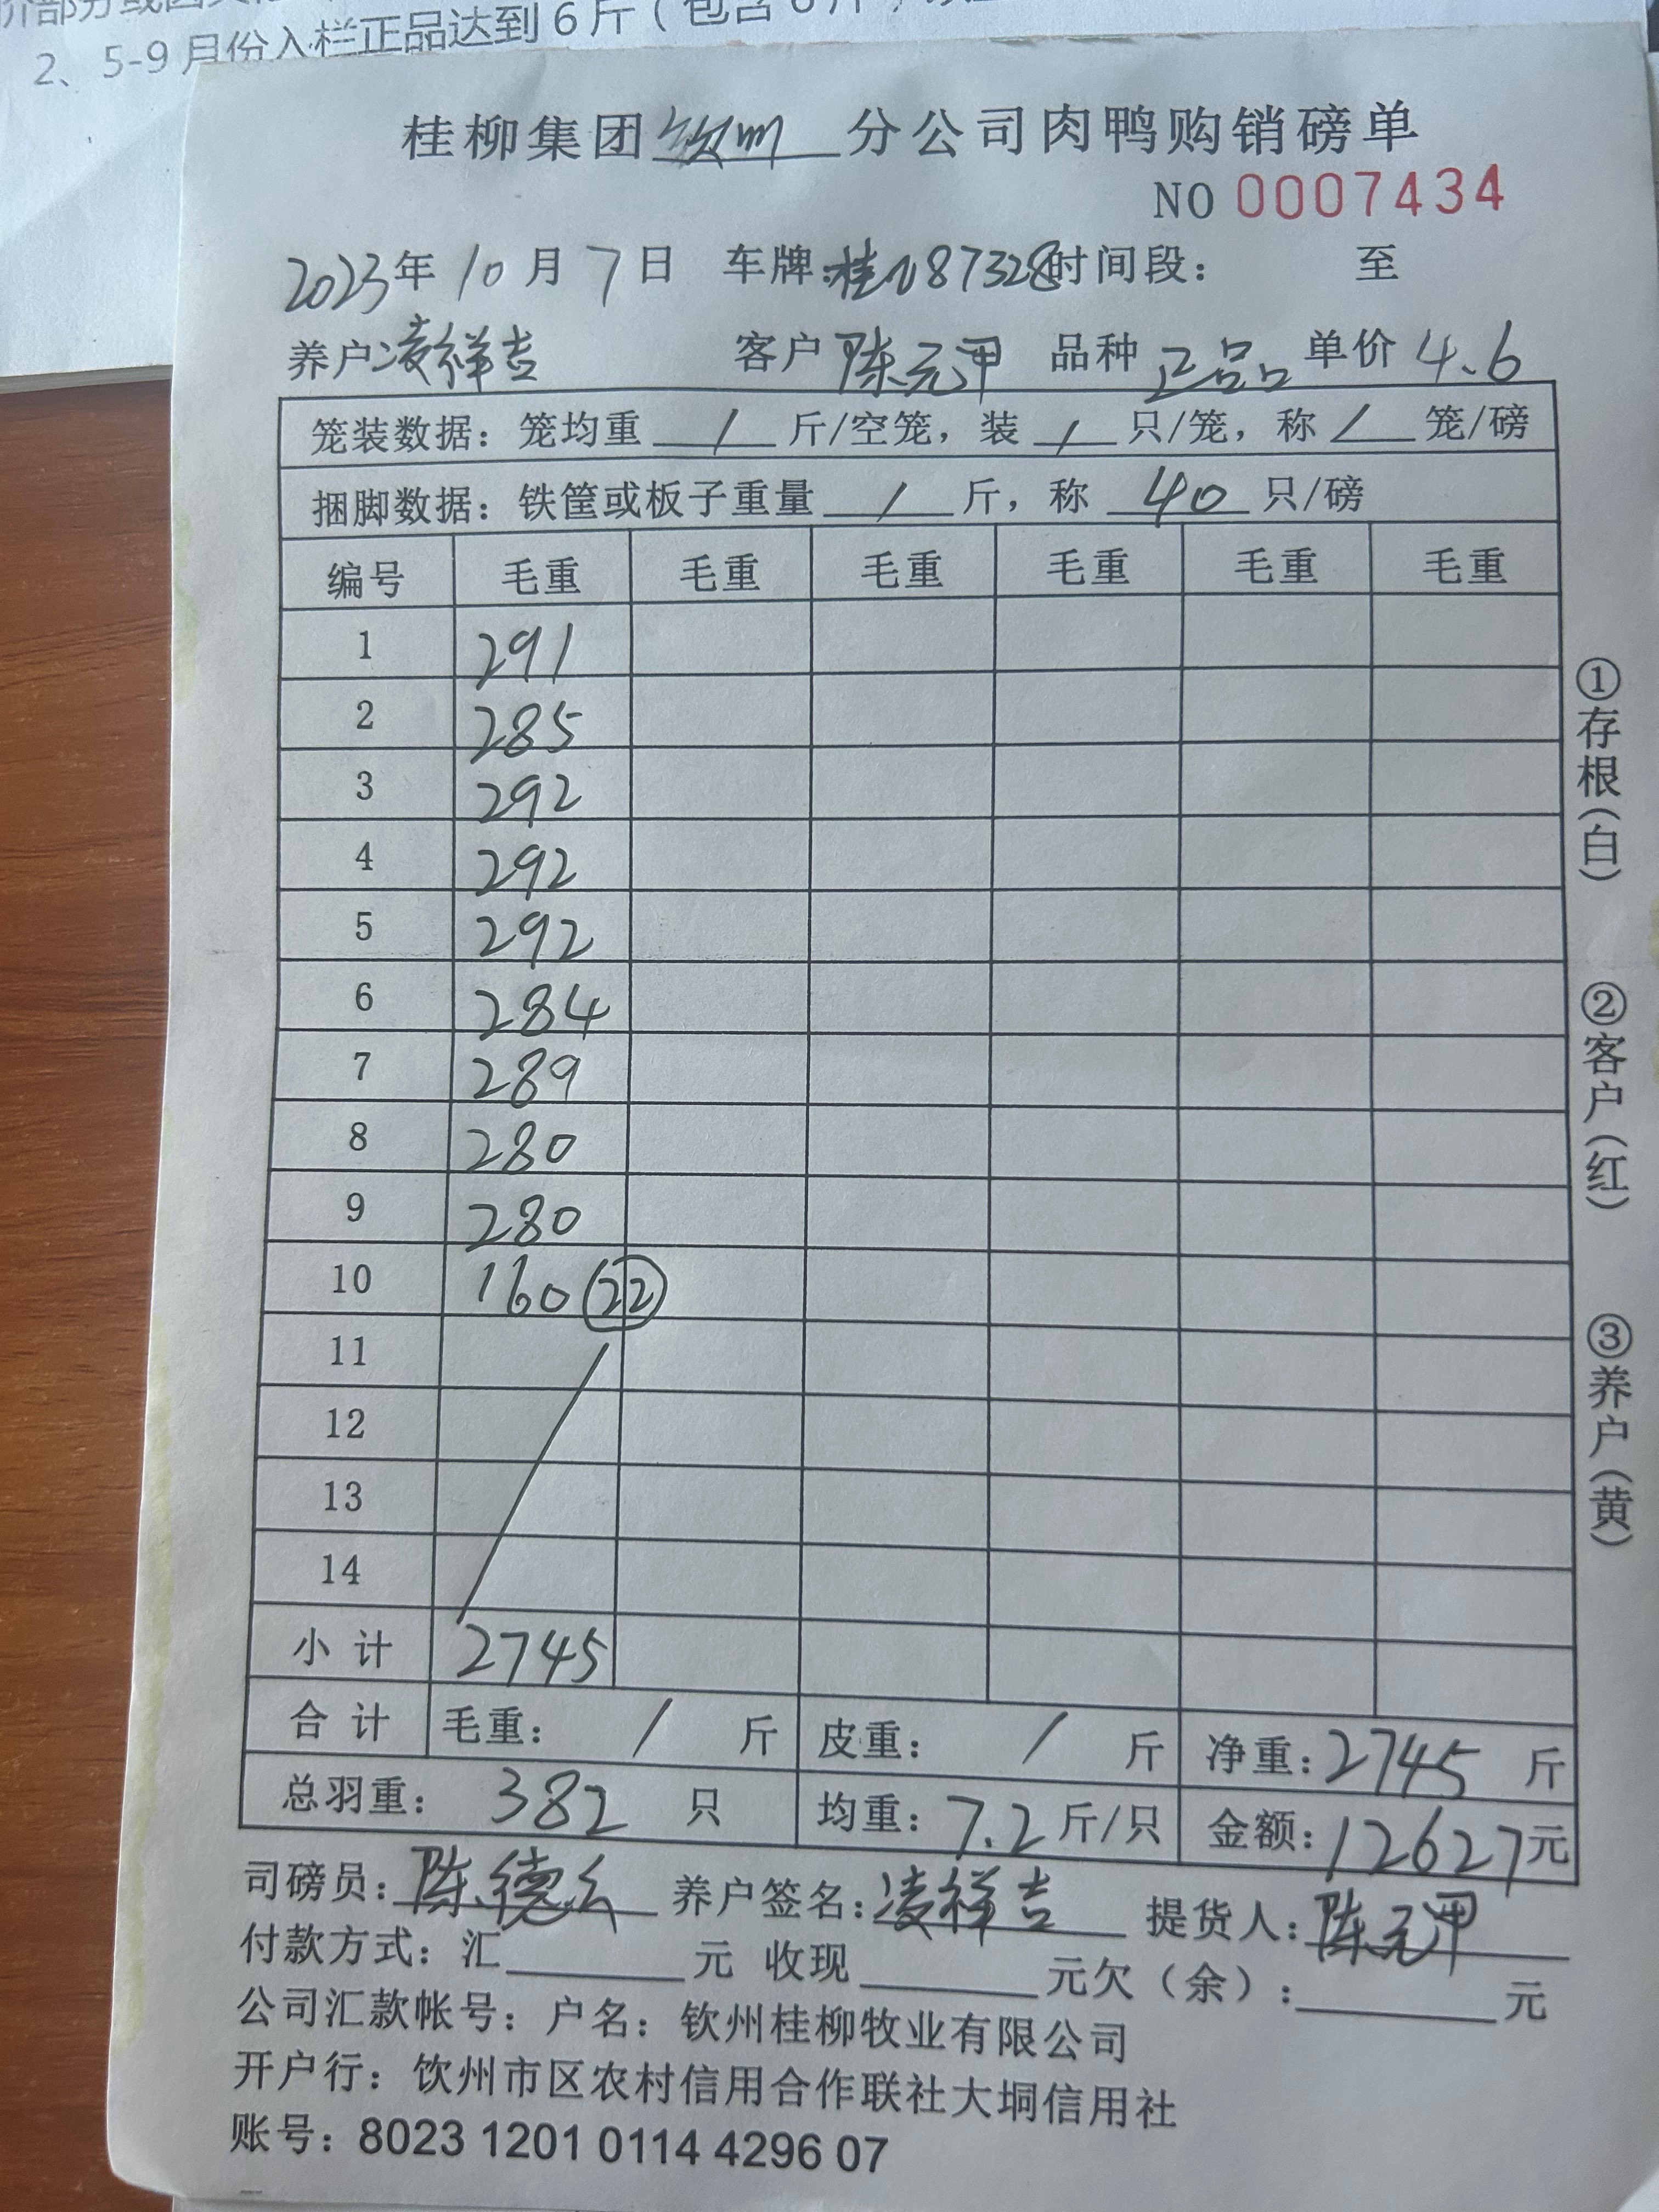 2、5-9月份入栏正品达到6斤（包含6斤
桂柳集团钦州分公司肉鸭购销磅单
NO 0007434
2023年10月7日 车牌:桂N87328时间段： 至
养户凌祥吉 客户陈元甲 品种正品 单价4.6
笼装数据：笼均重/斤/空笼，装/只/笼，称/笼/磅
捆脚数据：铁筐或板子重量/斤，称40只/磅
编号 毛重 毛重 毛重 毛重 毛重 毛重
1 291
2 285
3 292
4 292
5 292
6 284
7 289
8 280
9 280
10 160(22)
11
12
13
14
小计 2745
合计 毛重：/斤 皮重：/斤 净重：2745斤
总羽重：382只 均重：7.2斤/只 金额：12627元
司磅员：陈德 养户签名：凌祥吉 提货人：陈元甲
付款方式：汇______元 收现______元欠（余）：______元
公司汇款帐号：户名：钦州桂柳牧业有限公司
开户行：饮州市区农村信用合作联社大垌信用社
账号：8023 1201 0114 4296 07
①存根（白）
②客户（红）
③养户（黄）